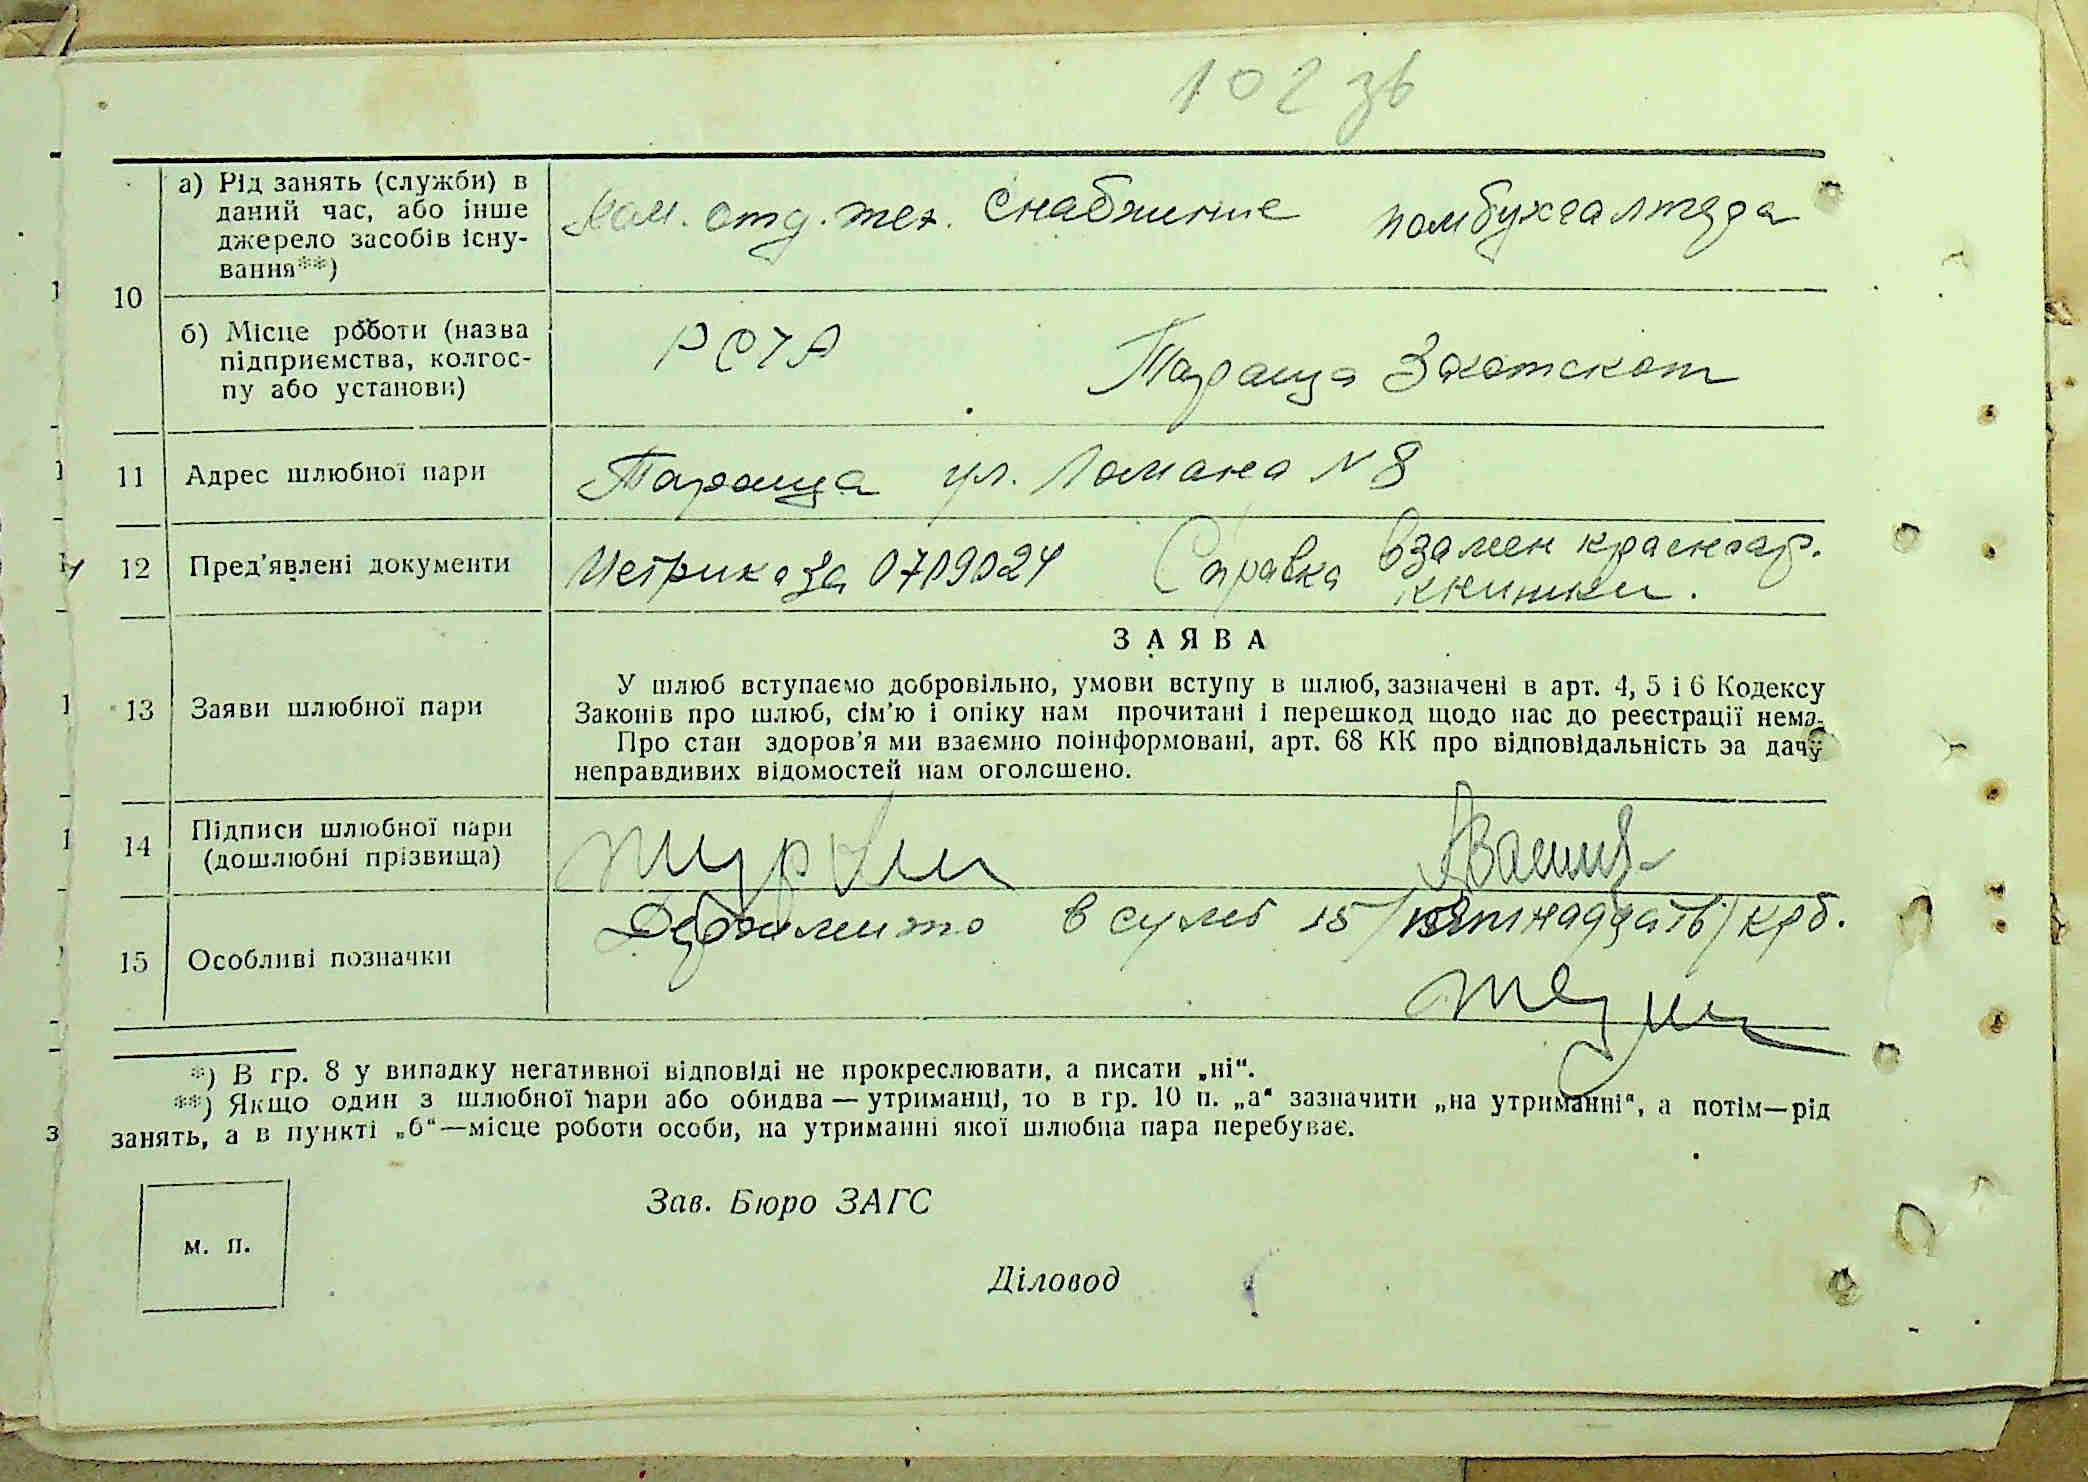 102 зв
10
а) Рід занять (служби) в
даний час, або інше
джерело засобів існу-
вання**)
отд. тех. снабжение помбухгалтера
б) Місце роботи (назва
підприємства, колгос-
пу або установи)
Тараща
11 Адрес шлюбної пари
Тараща ул. N 8
12 Пред'явлені документи
Метрика за Справка взамен красноар.
книжки.
13 Заяви шлюбної пари
ЗАЯВА
У шлюб вступаємо добровільно, умови вступу в шлюб, зазначені в арт. 4, 5 і 6 Кодексу
Законів про шлюб, сім'ю і опіку нам прочитані і перешкод щодо нас до реєстрації нема.
Про стан здоров'я ми взаємно поінформовані, арт. 68 КК про відповідальність за дачу
неправдивих відомостей нам оголошено.
14 Підписи шлюбної пари
(дошлюбні прізвища)
15 Особливі позначки
в сумі 15 /пятнаддать/ крб.
*) В гр. 8 у випадку негативної відповіді не прокреслювати, а писати „ні“.
**) Якщо один з шлюбної пари або обидва — утриманці, то в гр. 10 п. „а“ зазначити „на утриманні“, а потім—рід
занять, а в пункті „б“—місце роботи особи, на утриманні якої шлюбна пара перебуває.
Зав. Бюро ЗАГС
м. п.
Діловод